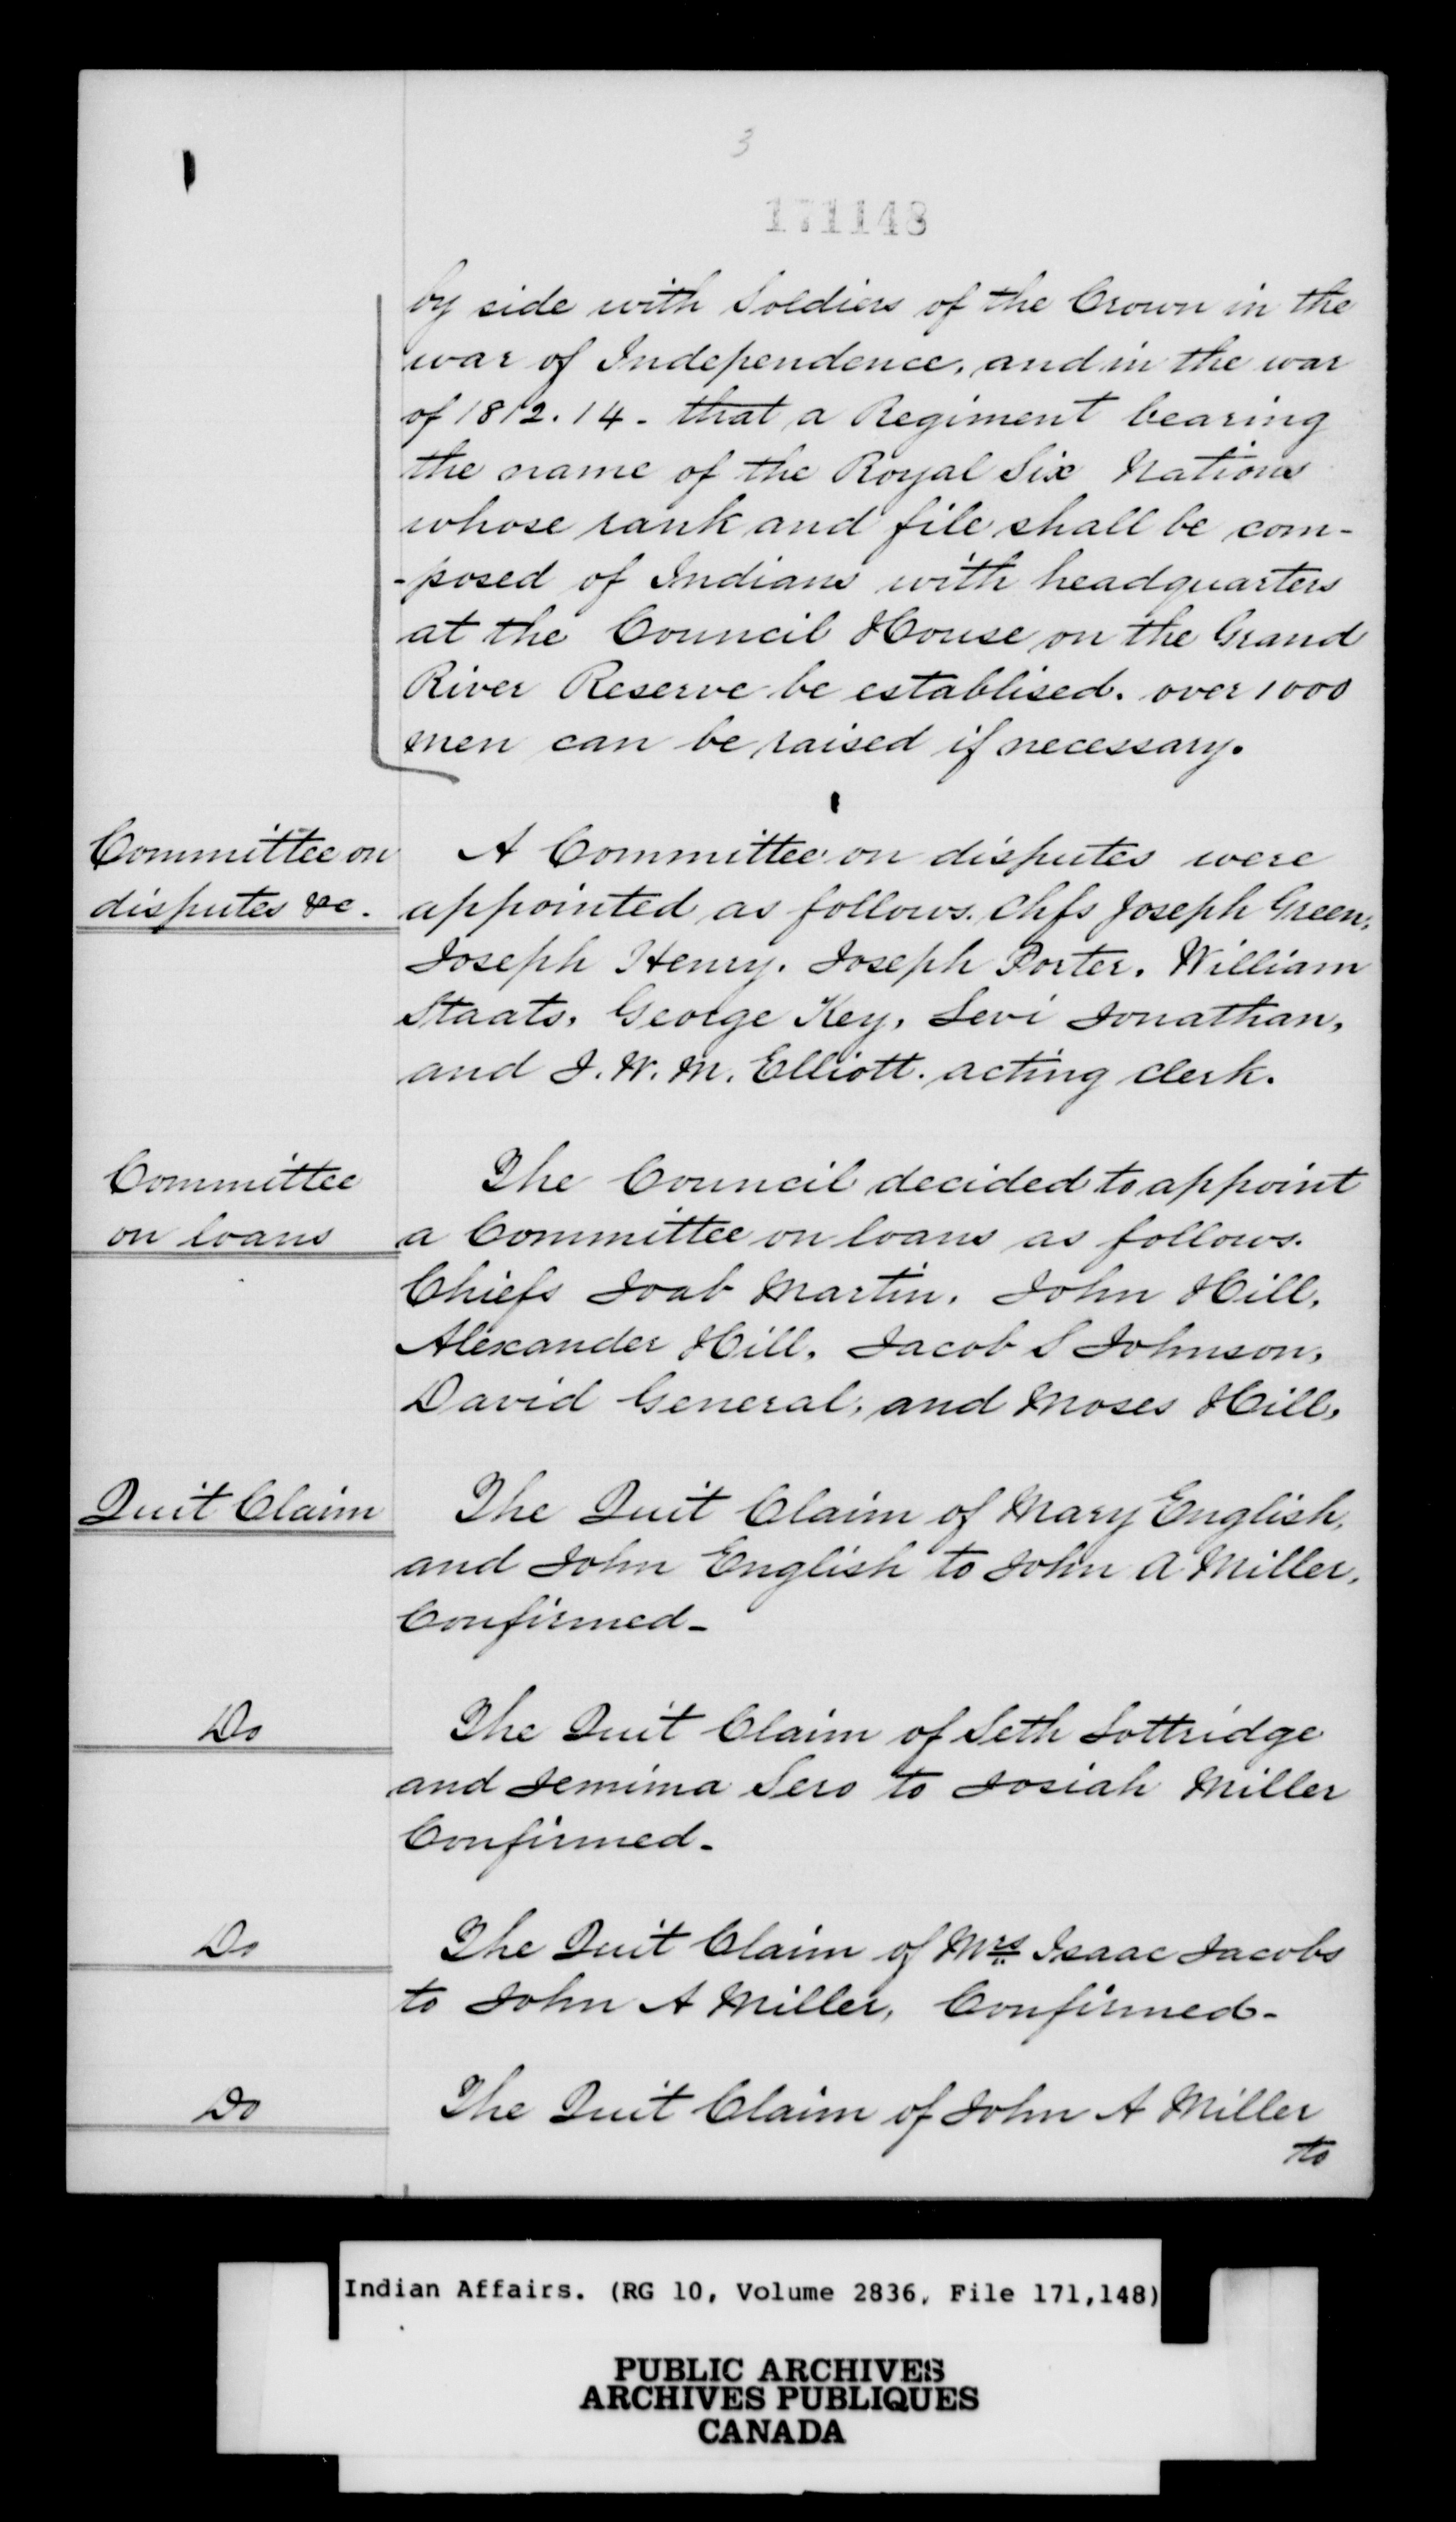 3
171148
by side with Soldiers of the Crown in the
war of Independence, and in the war
of 1812.14 - that a Regiment bearing
the name of the Royal Six Nations
whose rank and file shall be com-
-posed of Indians with headquarters
at the Council House on the Grand
River Reserve be establised. over 1000
men can be raised if necessary.
Committee on
disputes &c.
A Committee on disputes were
appointed as follows. Chfs Joseph Green,
Joseph Henry. Joseph Porter. William
Staats. George Key, Levi Jonathan,
and J. W. M. Elliott. acting clerk.
Committee
on loans
The Council decided to appoint
a Committee on loans as follows.
Chiefs Joab Martin. John Hill.
Alexander Hill. Jacob S Johnson,
David General, and Moses Hill.
Quit Claim
The Quit Claim of Mary English,
and John English to John A Miller.
Confirmed-
Do
The Quit Claim of Seth Lottridge
and Jemima Sero to Josiah Miller
Confirmed-
Do
The Quit Claim of Mrs Isaac Jacobs
to John A Miller, Confirmed-
Do
The Quit Claim of John A Miller
to
Indian Affairs. (RG 10, Volume 2836, File 171,148)
PUBLIC ARCHIVES
ARCHIVES PUBLIQUES
CANADA